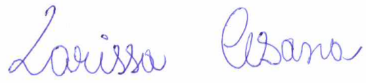 Larissa Cesana